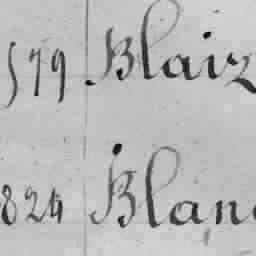 579 Blaiz
824 Blan